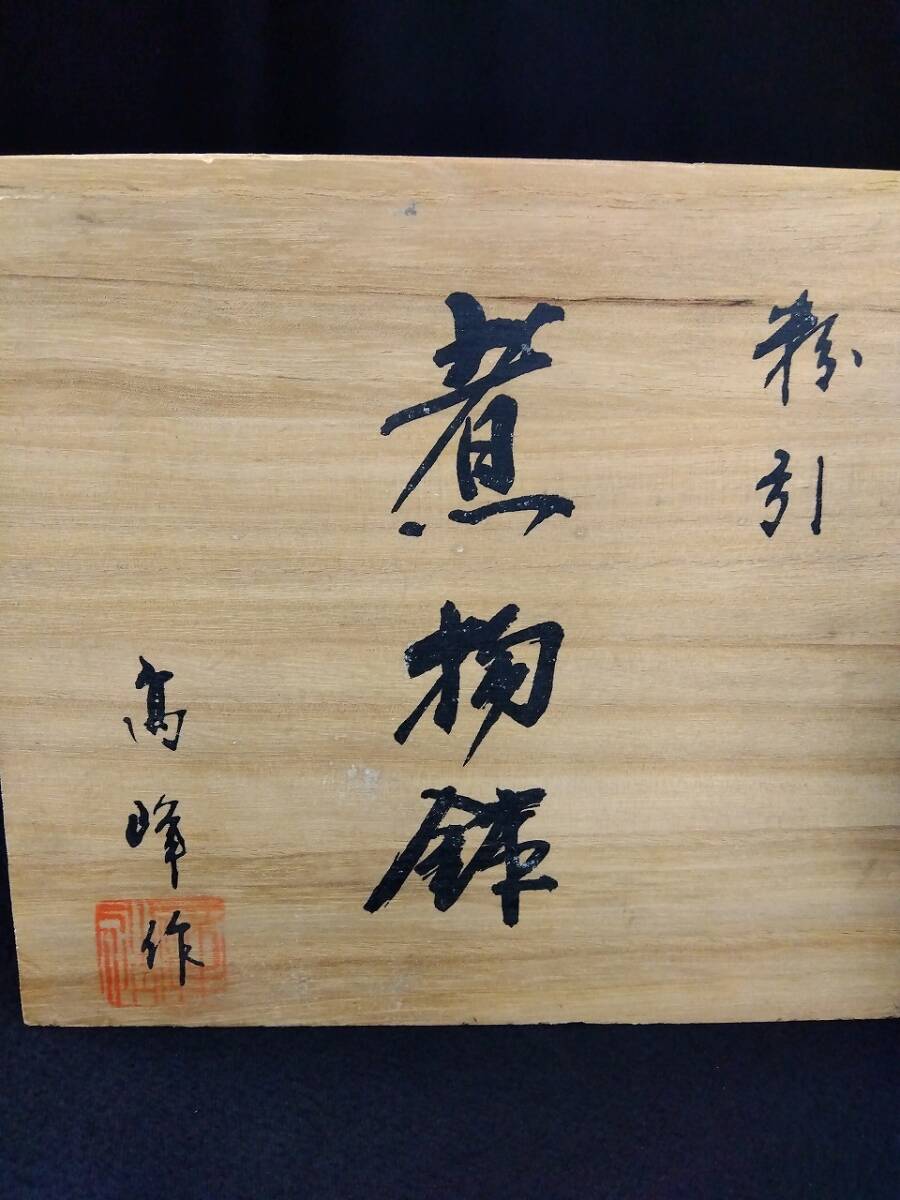 粉引
煮物鉢
高峰作